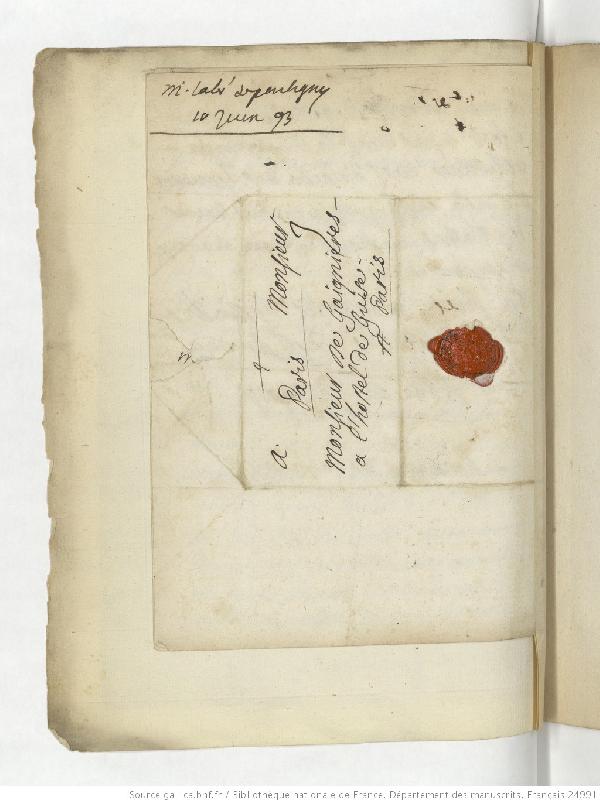 Mr. l'abé de pontigny
10 Juin 93
A Monsieur
Paris
Monsieur De Gaignieres
a l'hostel de Guise
A Paris
Source gallica.bnf.fr / Bibliothèque nationale de France. Département des manuscrits. Français 24991